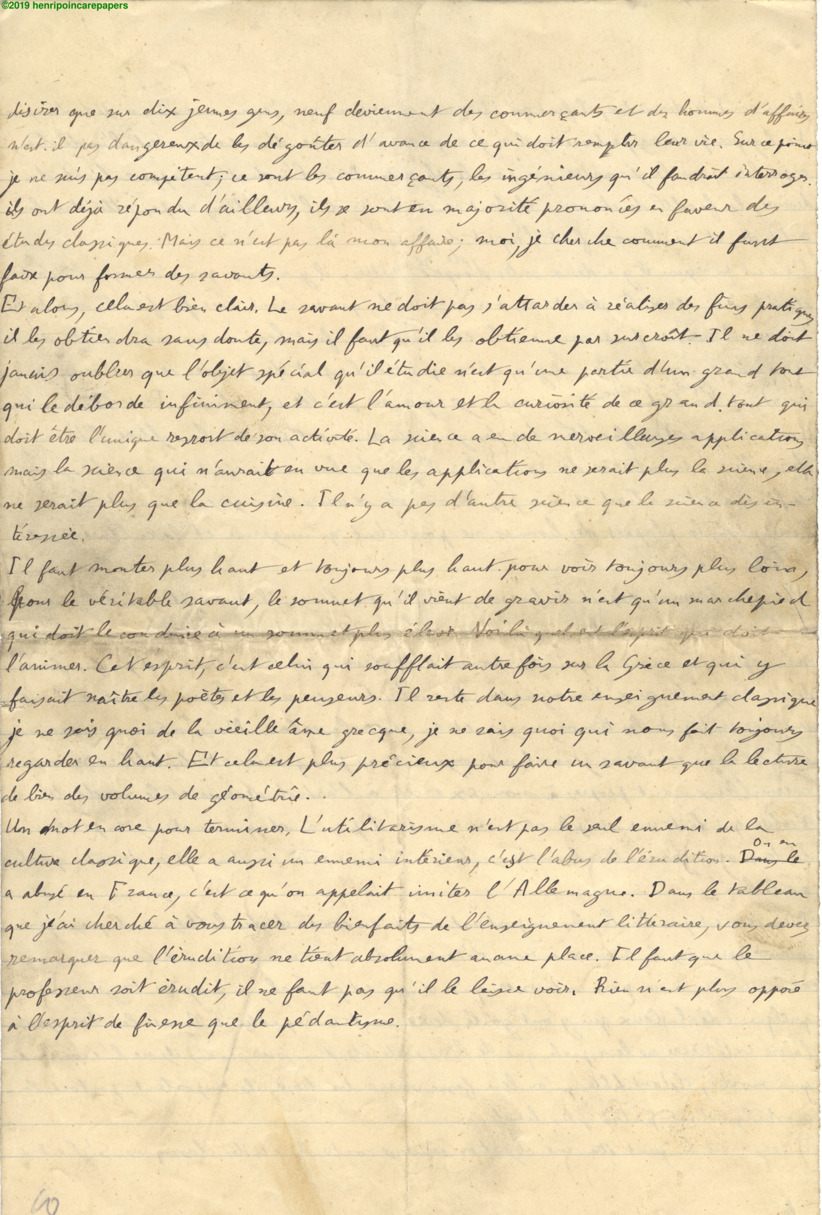 ©2019 henripoincarepapers
désirer que sur dix jeunes gens, neuf deviennent des commerçants et des hommes d'affaires
n'est-il pas dangereux de les dégoûter d'avance de ce qui doit remplir leur vie. Sur ce point
je ne suis pas compétent; ce sont les commerçants, les ingénieurs qu'il faudrait interroger.
ils ont déjà répondu d'ailleurs, ils se sont en majorité prononcés en faveur des
études classiques. Mais ce n'est pas là mon affaire; moi, je cherche comment il faut
faire pour former des savants.
Et alors, cela est bien clair. Le savant ne doit pas s'attarder à réaliser des fins pratiques
il les obtiendra sans doute, mais il faut qu'il les obtienne par surcroît. Il ne doit
jamais oublier que l'objet spécial qu'il étudie n'est qu'une partie d'un grand tout
qui le déborde infiniment, et c'est l'amour et la curiosité de ce grand tout qui
doit être l'unique ressort de son activité. La science a eu de merveilleuses applications
mais la science qui n'aurait en vue que les applications ne serait plus la science, elle
ne serait plus que la cuisine. Il n'y a pas d'autre science que la science désin-
téressée.
Il faut monter plus haut et toujours plus haut pour voir toujours plus loin,
pour le véritable savant, le sommet qu'il vient de gravir n'est qu'un marchepied
qui doit le conduire à un sommet plus élevé. Voilà quel est l'esprit qui doit
l'animer. Cet esprit, c'est celui qui soufflait autrefois sur la Grèce et qui y
faisait naître les poètes et les penseurs. Il reste dans notre enseignement classique
je ne sais quoi de la vieille âme grecque, je ne sais quoi qui nous fait toujours
regarder en haut. Et cela est plus précieux pour faire un savant que la lecture
de bien des volumes de géométrie.
Un mot encore pour terminer. L'utilitarisme n'est pas le seul ennemi de la
culture classique, elle a aussi un ennemi intérieur, c'est l'abus de l'érudition. Dans le On en
a abusé en France, c'est ce qu'on appelait imiter l'Allemagne. Dans le tableau
que j'ai cherché à vous tracer des bienfaits de l'enseignement littéraire, vous devez
remarquer que l'érudition ne tient absolument aucune place. Il faut que le
professeur soit érudit, il ne faut pas qu'il le laisse voir. Rien n'est plus opposé
à l'esprit de finesse que le pédantisme.